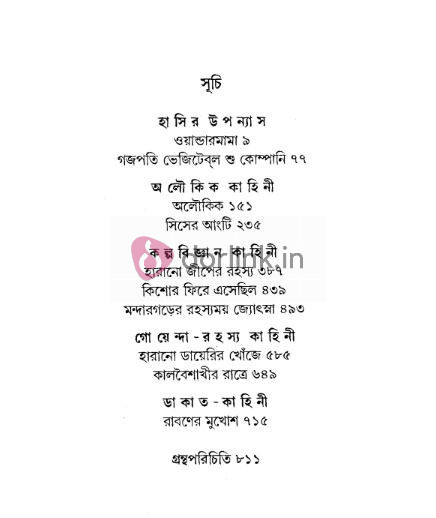 সূচি
হাসির উপন্যাস
ওয়ান্ডারমামা ৯
গজপতি ভেজিটেব্‌ল শু কোম্পানি ৭৭
অলৌকিক কাহিনী
অলৌকিক ১৫১
সিসের আংটি ২৩৫
কল্পবিজ্ঞান কাহিনী
হারানো জীপের রহস্য ৩৮৭
কিশোর ফিরে এসেছিল ৪৩৯
মন্দারগড়ের রহস্যময় জ্যোৎস্না ৪৯৩
গোয়েন্দা-রহস্য কাহিনী
হারানো ডায়েরির খোঁজে ৫৮৫
কালবৈশাখীর রাত্রে ৬৪৯
ডাকাত-কাহিনী
রাবণের মুখোশ ৭১৫
গ্রন্থপরিচিতি ৮১১
dorlink.in